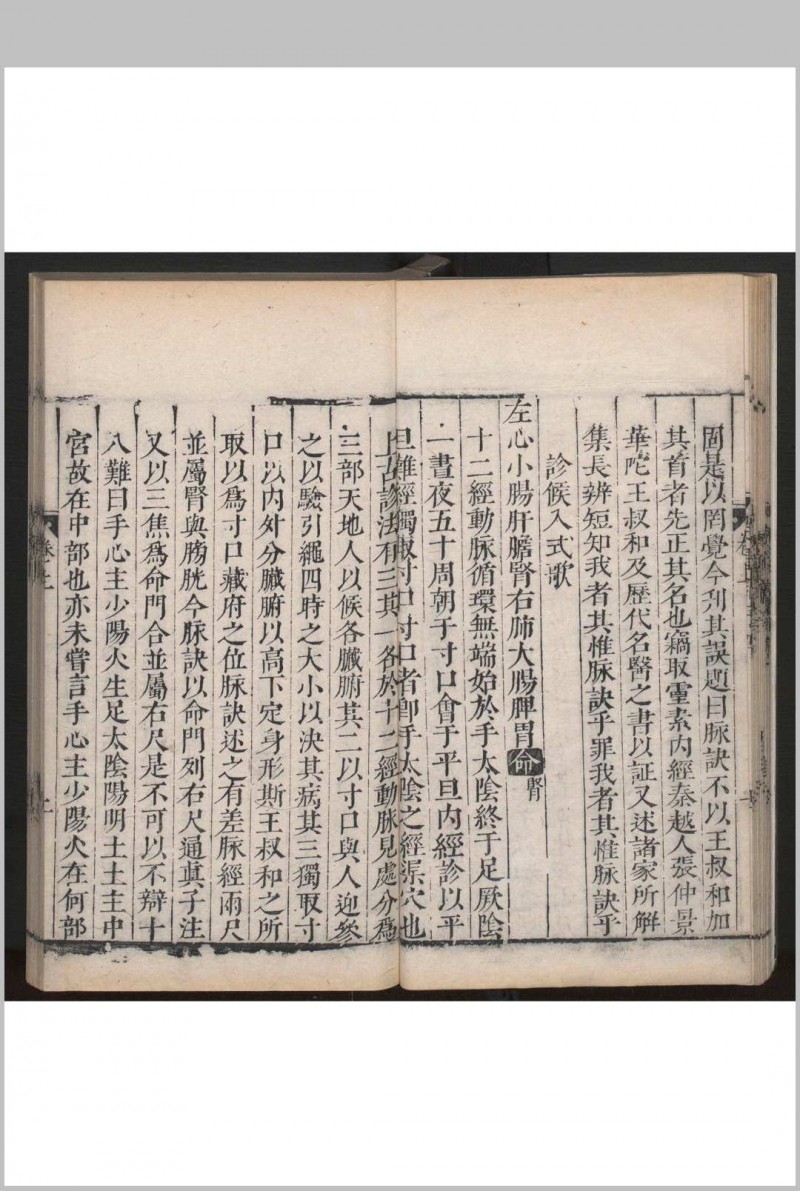 固是以罔覺今刋其誤題曰脉訣不以王叔和加
其首者先正其名也竊取靈素内經秦越人張仲景
華陀王叔和及歷代名醫之書以証又述諸家所解
集長辨短知我者其惟脉訣乎罪我者其惟脉訣乎
診候入式歌
左心小腸肝膽腎右肺大腸脾胃命腎
十二經動脉循環無端始於手太陰終于足厥陰
一晝夜五十周朝于寸口會于平旦内經診以平
旦難經獨取寸口寸口者卽手太陰之經渠穴也
上古診法有三其一各於十二經動脉見處分爲
三部天地人以候各臟腑其二以寸口與人迎參
之以驗引繩四時之大小以決其病其三獨取寸
口以内外分臟腑以高下定身形斯王叔和之所
取以爲寸口藏府之位脉訣述之有差脉經兩尺
並屬腎與膀胱今脉訣以命門列右尺通眞子注
又以三焦爲命門合並屬右尺是不可以不辯十
八難曰手心主少陽火生足太陰陽明土土主中
宮故在中部也亦未嘗言手心主少陽火在何部
卷上
卷上